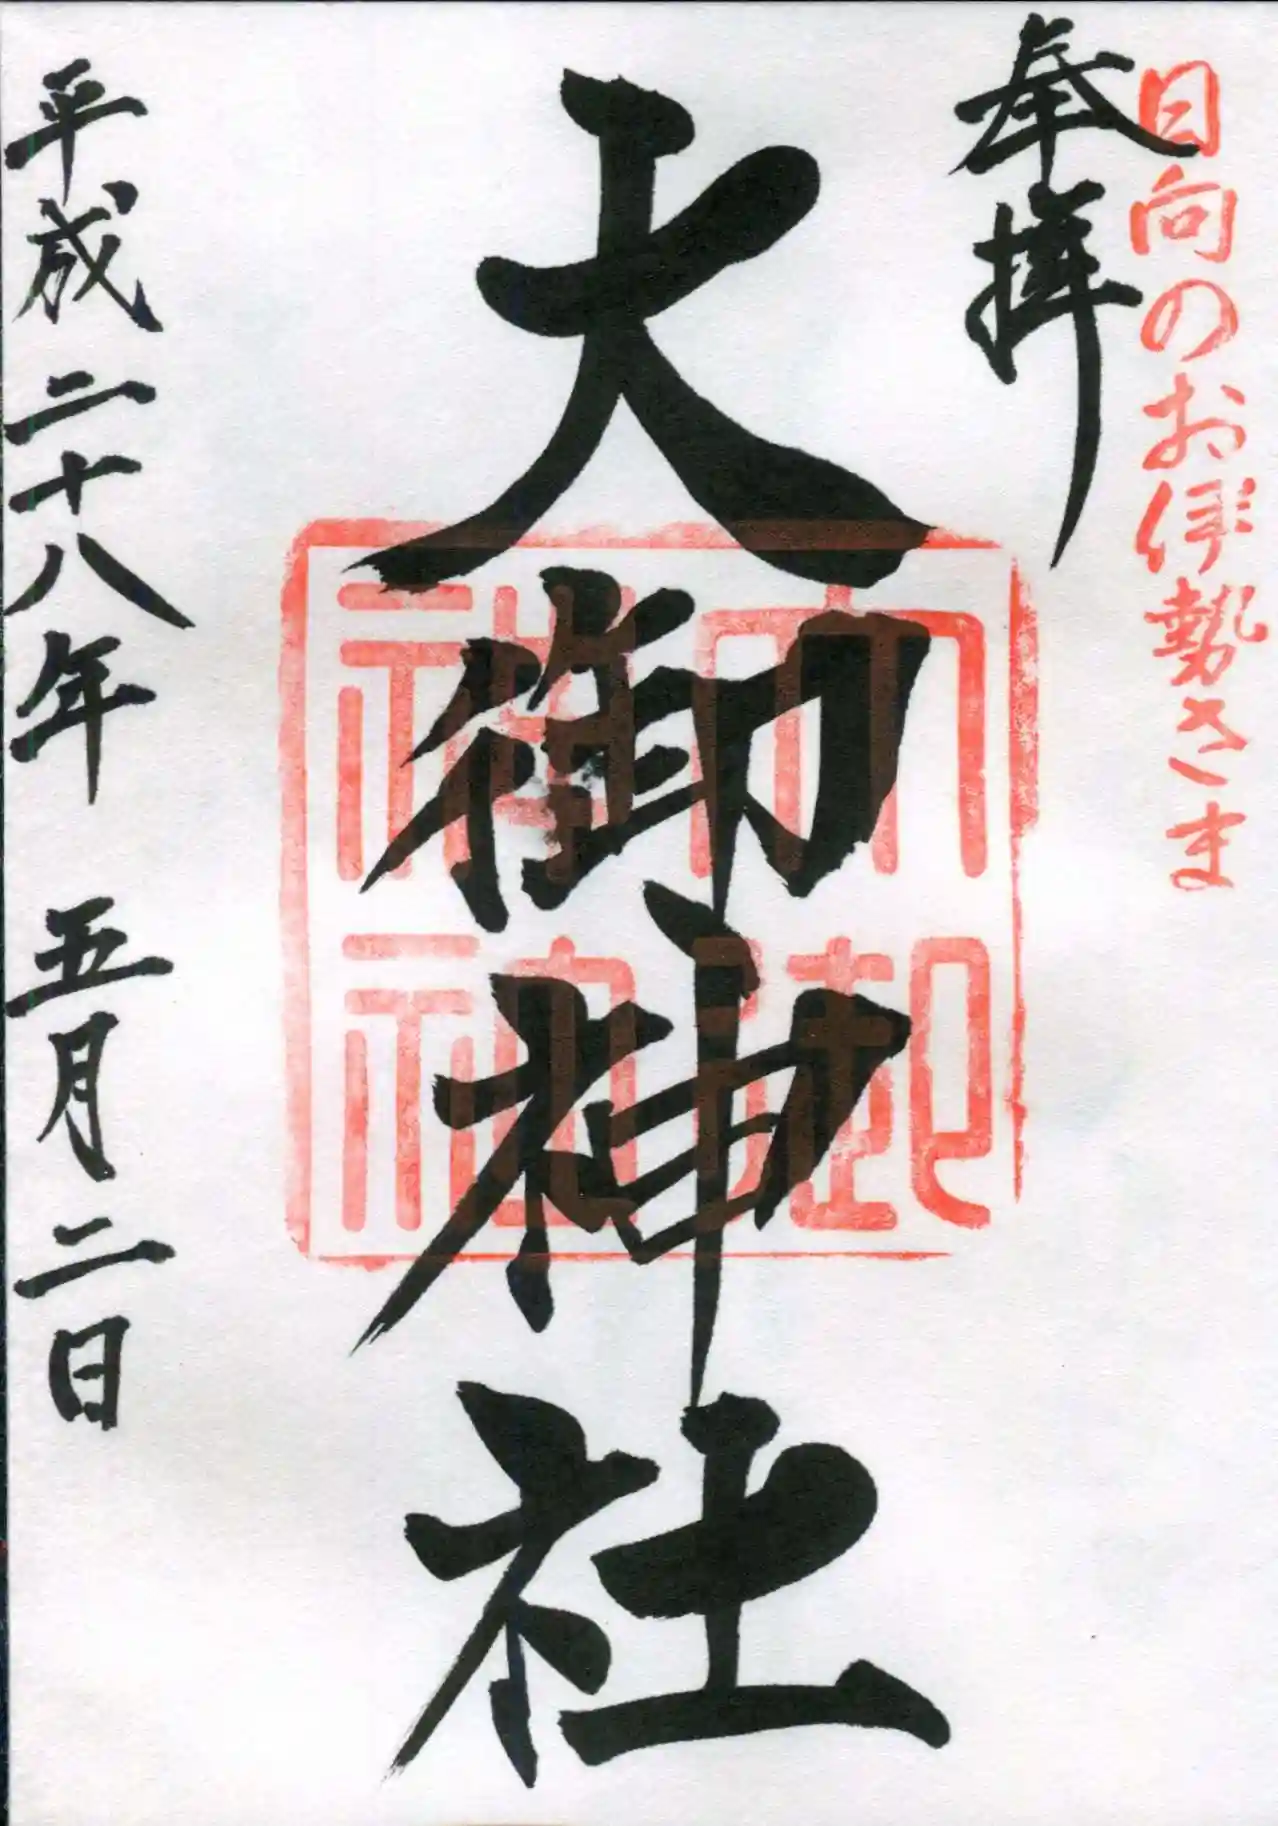 日向のお伊勢さま
奉拝
大御神社
大御神社
平成二十八年 五月二日